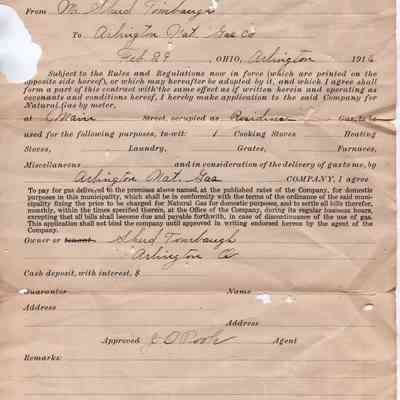 From Mr Shird Tombaugh
To Arlington Nat. Gas Co
Feb 29 OHIO, Arlington 1916
Subject to the Rules and Regulations now in force (which are printed on the
opposite side hereof), or which may hereafter be adopted by it, and which I agree shall
form a part of this contract with the same effect as if written herein and operating as
covenants and conditions hereof, I hereby make application to the said Company for
Natural Gas by meter,
at Main Street, occupied as Residence Gas to be
used for the following purposes, to-wit: 1 Cooking Stoves Heating
Stoves, Laundry, Grates, Furnaces,
Miscellaneous and in consideration of the delivery of gas to me, by
Arlington Nat. Gas COMPANY, I agree
To pay for gas delivered to the premises above named, at the published rates of the Company, for domestic
purposes in this municipality, which shall be in conformity with the terms of the ordinance of the said muni-
cipality fixing the price to be charged for Natural Gas for domestic purposes, and to settle all bills therefor,
monthly, within the times specified therein, at the Office of the Company, during its regular business hours,
excepting that all bills shall become due and payable forthwith, in case of discontinuance of the use of gas.
This application shall not bind the company until approved in writing endorsed hereon by the agent of the
Company.
Owner or tenant. Shird Tombaugh
Arlington O
Cash deposit, with interest, $
Guarantor Name
Address
Address
Approved Agent
Remarks: